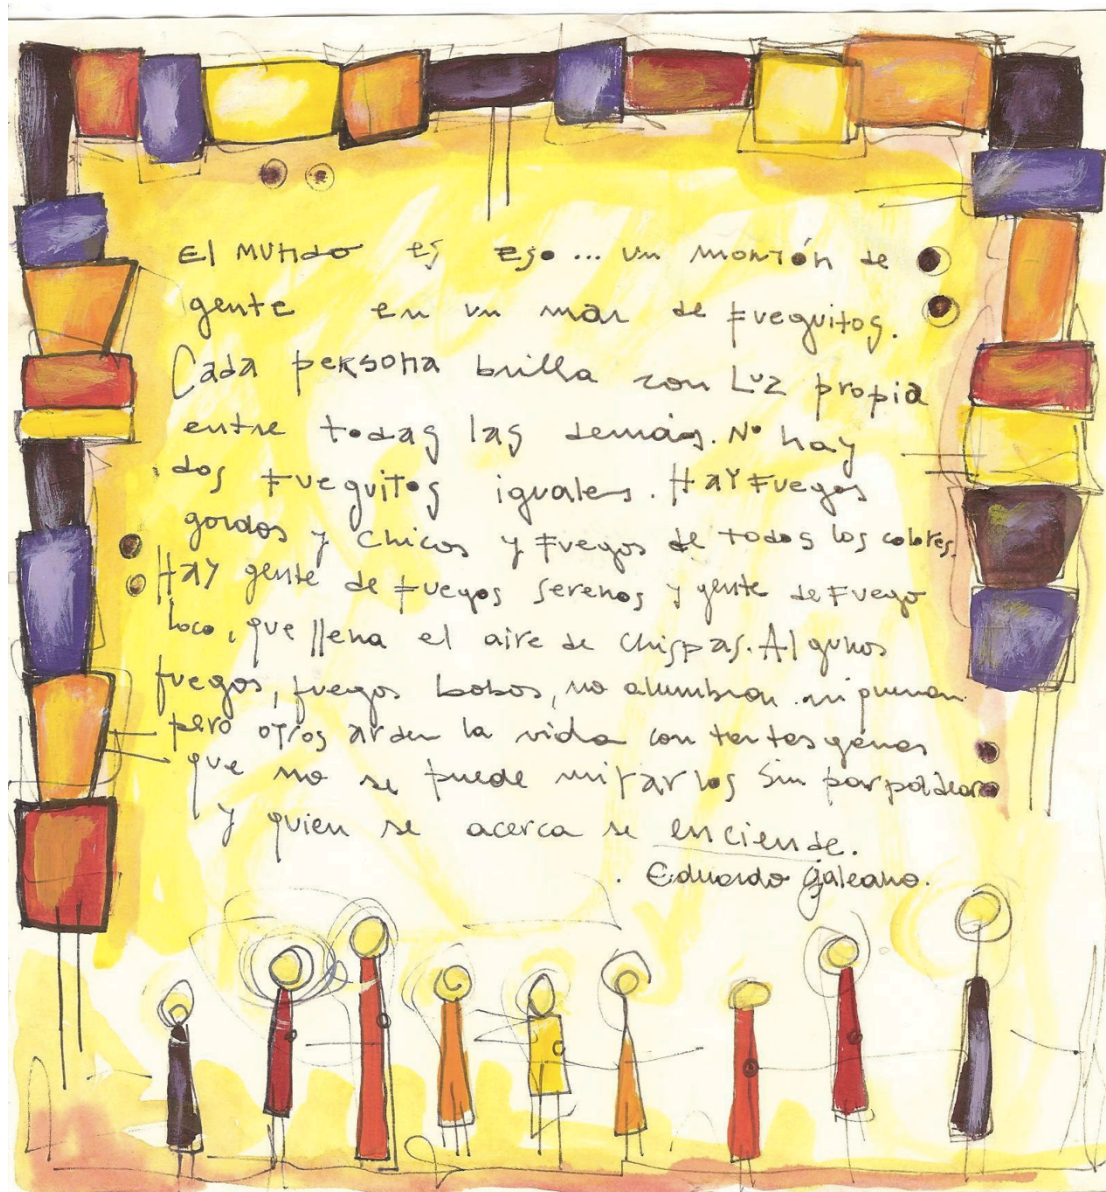 El mundo es eso... un montón de
gente en un mar de fueguitos.
Cada persona brilla con Luz propia
entre todas las demás. No hay
dos fueguitos iguales. Hay fuegos
gordos y chicos y fuegos de todos los colores.
Hay gente de fuegos serenos y gente de fuego
loco, que llena el aire de chispas. Algunos
fuegos, fuegos bobos, no alumbran ni queman
pero otros arden la vida con tantas ganas
que no se puede mirarlos sin parpadear
y quien se acerca se enciende.
Eduardo Galeano.